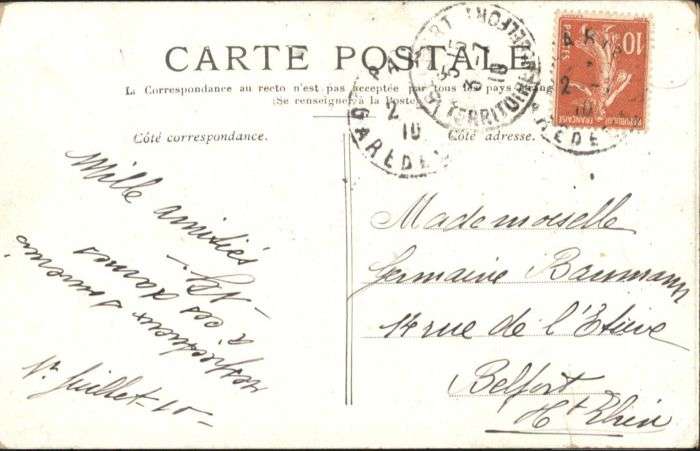 CARTE POSTALE
La Correspondance au recto n'est pas acceptée par tous les pays étrangers
(Se renseigner à la Poste)
Côté correspondance.
Côté adresse.
Mille amitiés
à ces dames
respectueux souvenirs
1er Juillet 10 -
Mademoiselle
Germaine Baumann
14 rue de l'Etuve
Belfort
Ht Rhin
10c
POSTES
REPUBLIQUE FRANÇAISE
BELFORT
TERRITOIRE
10
PARIS
GARE DE
2
10